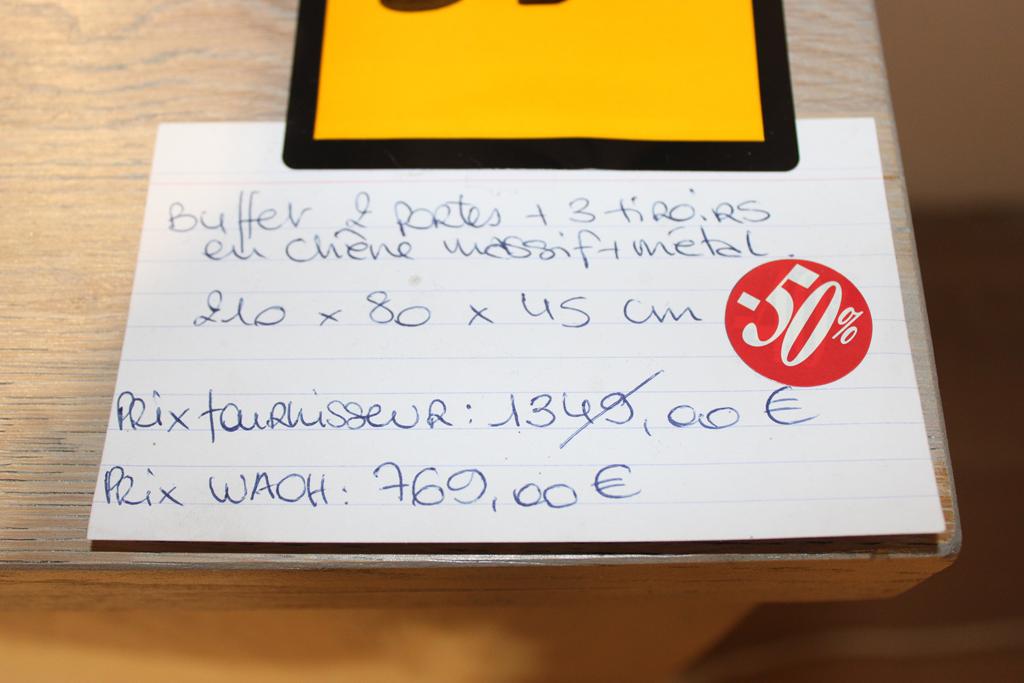 Buffet 2 portes + 3 tiroirs
en chêne massif + métal.
210 x 80 x 45 cm
-50%
Prix fournisseur : 1349,00 €
Prix WAOH : 769,00 €